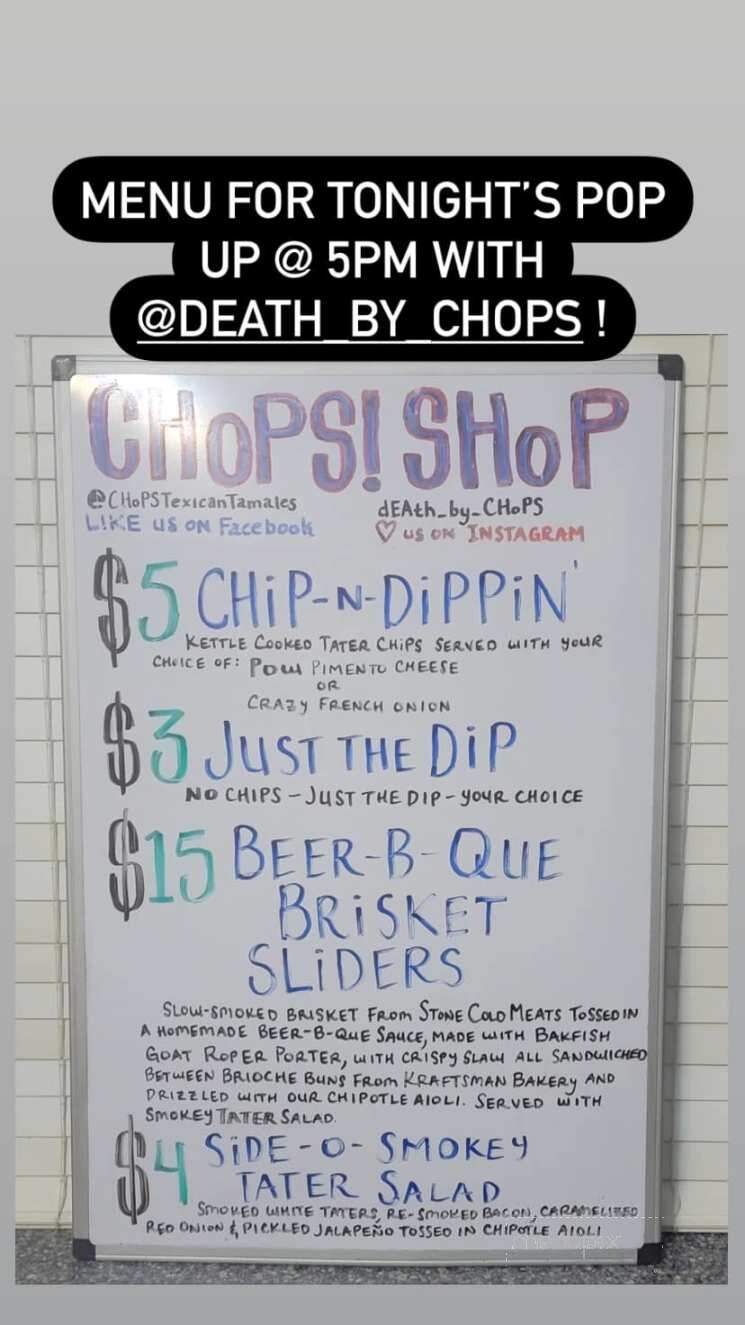 MENU FOR TONIGHT'S POP
UP @ 5PM WITH
@DEATH_BY_CHOPS !
CHoPS! SHoP
@CHoPSTexicanTamales
LIKE US ON Facebook
dEAth_by_CHoPS
♡ US ON INSTAGRAM
$5 CHiP-N-DiPPiN'
KETTLE COOKED TATER CHIPS SERVED WITH YOUR
CHOICE OF: POW PIMENTO CHEESE
OR
CRAZY FRENCH ONION
$3 JUST THE DiP
NO CHIPS - JUST THE DIP - YOUR CHOICE
$15 BEER-B-QUE
BRiSKET
SLiDERS
SLOW-SMOKED BRISKET FROM STONE COLD MEATS TOSSED IN
A HOMEMADE BEER-B-QUE SAUCE, MADE WITH BAKFISH
GOAT ROPER PORTER, WITH CRISPY SLAW ALL SANDWICHED
BETWEEN BRIOCHE BUNS FROM KRAFTSMAN BAKERY AND
DRIZZLED WITH OUR CHIPOTLE AIOLI. SERVED WITH
SMOKEY TATER SALAD.
$4 SiDE-O-SMOKEY
TATER SALAD
SMOKED WHITE TATERS, RE-SMOKED BACON, CARAMELIZED
RED ONION & PICKLED JALAPEÑO TOSSED IN CHIPOTLE AIOLI